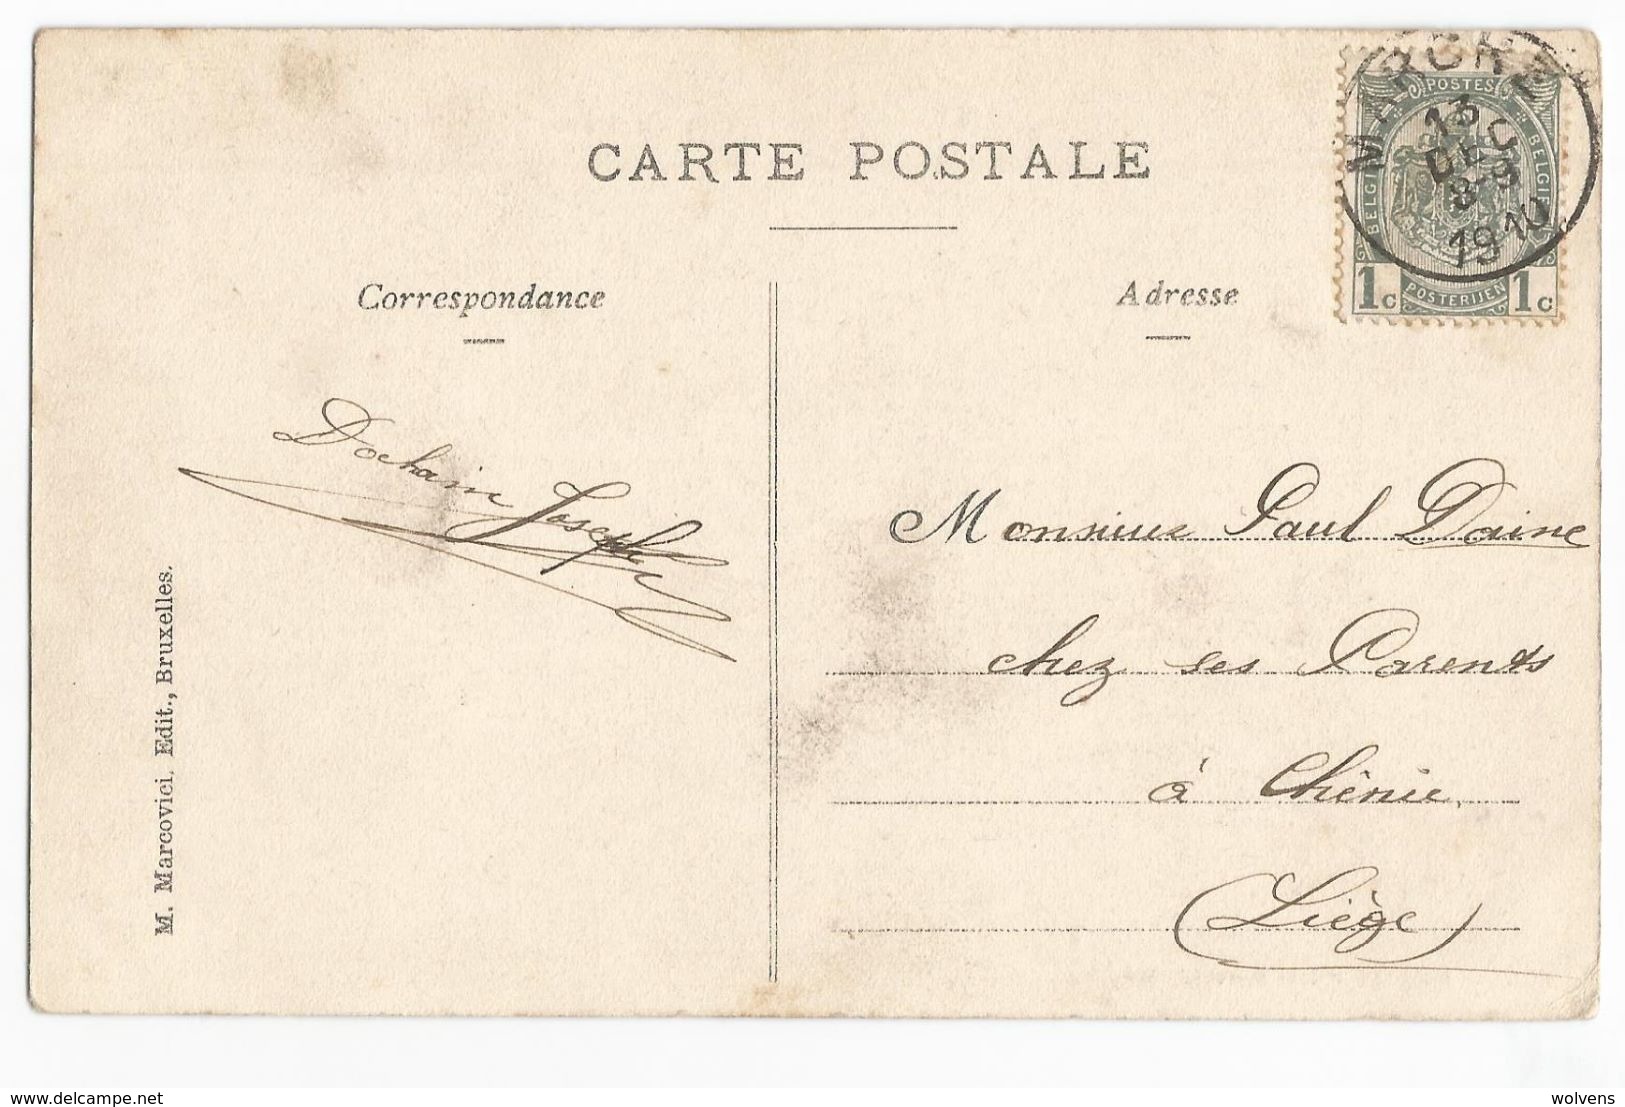 CARTE POSTALE
Correspondance
Adresse
MARCHE
13
DEC
8-9
1910
POSTES
BELGIQUE
BELGIË
1c
POSTERIJEN
1c
Dochain Joseph
M. Marcovici, Edit., Bruxelles.
Monsieur Paul Daine
chez ses Parents
à Chênée
(Liège)
www.delcampe.net
wolvens